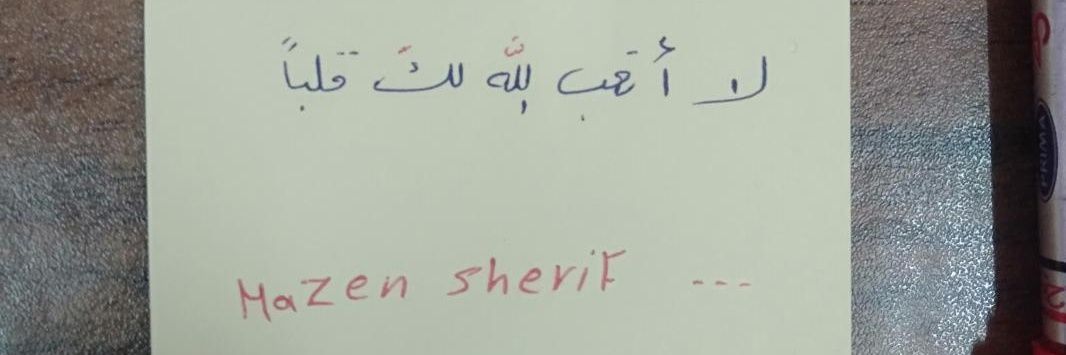 لا أتعب للَّه لكَ قلباً
Mazen sherif ...
PRIMA